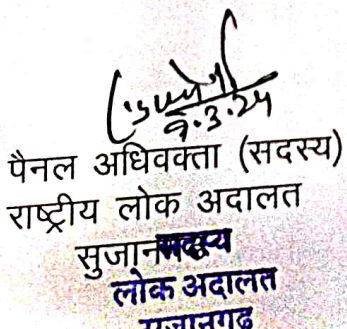 9.3.24
पैनल अधिवक्ता (सदस्य)
राष्ट्रीय लोक अदालत
सदस्य
लोक अदालत
सुजानगढ़